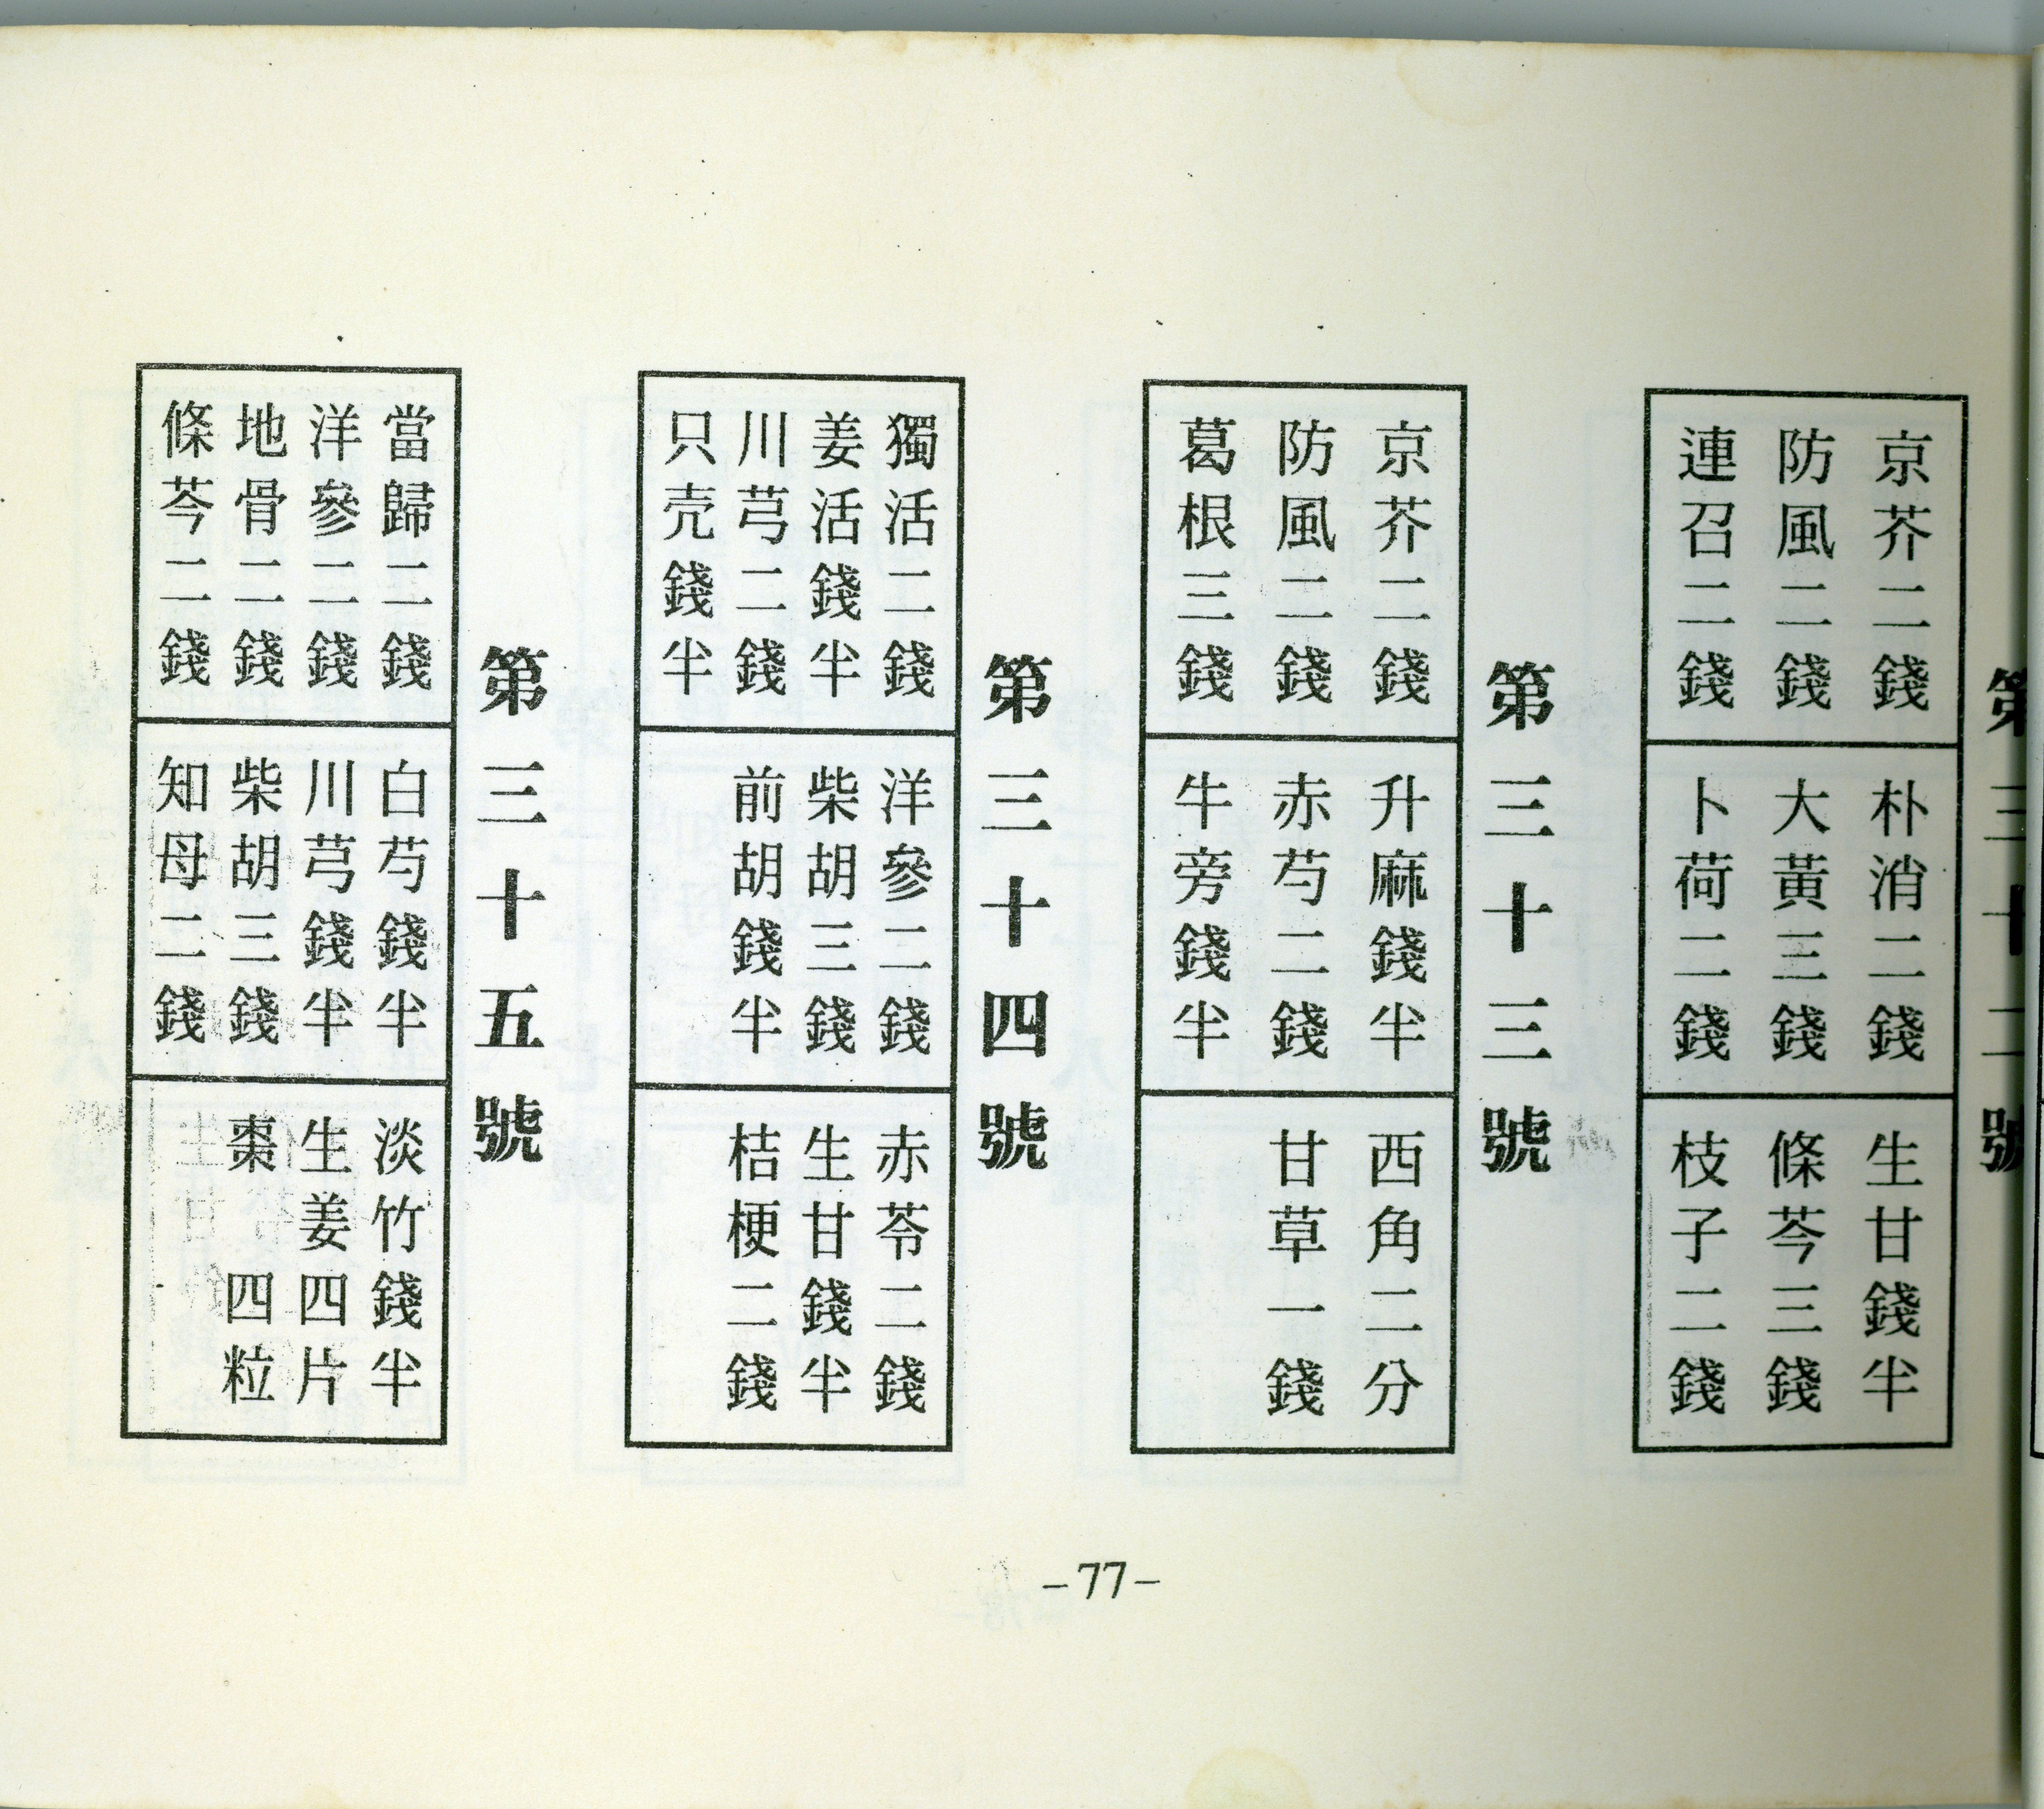 第三十二號
京芥二錢
防風二錢
連召二錢
朴消二錢
大黃三錢
卜荷二錢
生甘錢半
條芩三錢
枝子二錢
第三十三號
京芥二錢
防風二錢
葛根三錢
升麻錢半
赤芍二錢
牛旁錢半
西角二分
甘草一錢
第三十四號
獨活二錢
姜活錢半
川芎二錢
只壳錢半
洋參二錢
柴胡三錢
前胡錢半
赤苓二錢
生甘錢半
桔梗二錢
第三十五號
當歸二錢
洋參二錢
地骨二錢
條芩二錢
白芍錢半
川芎錢半
柴胡三錢
知母二錢
淡竹錢半
生姜四片
棗 四粒
-77-